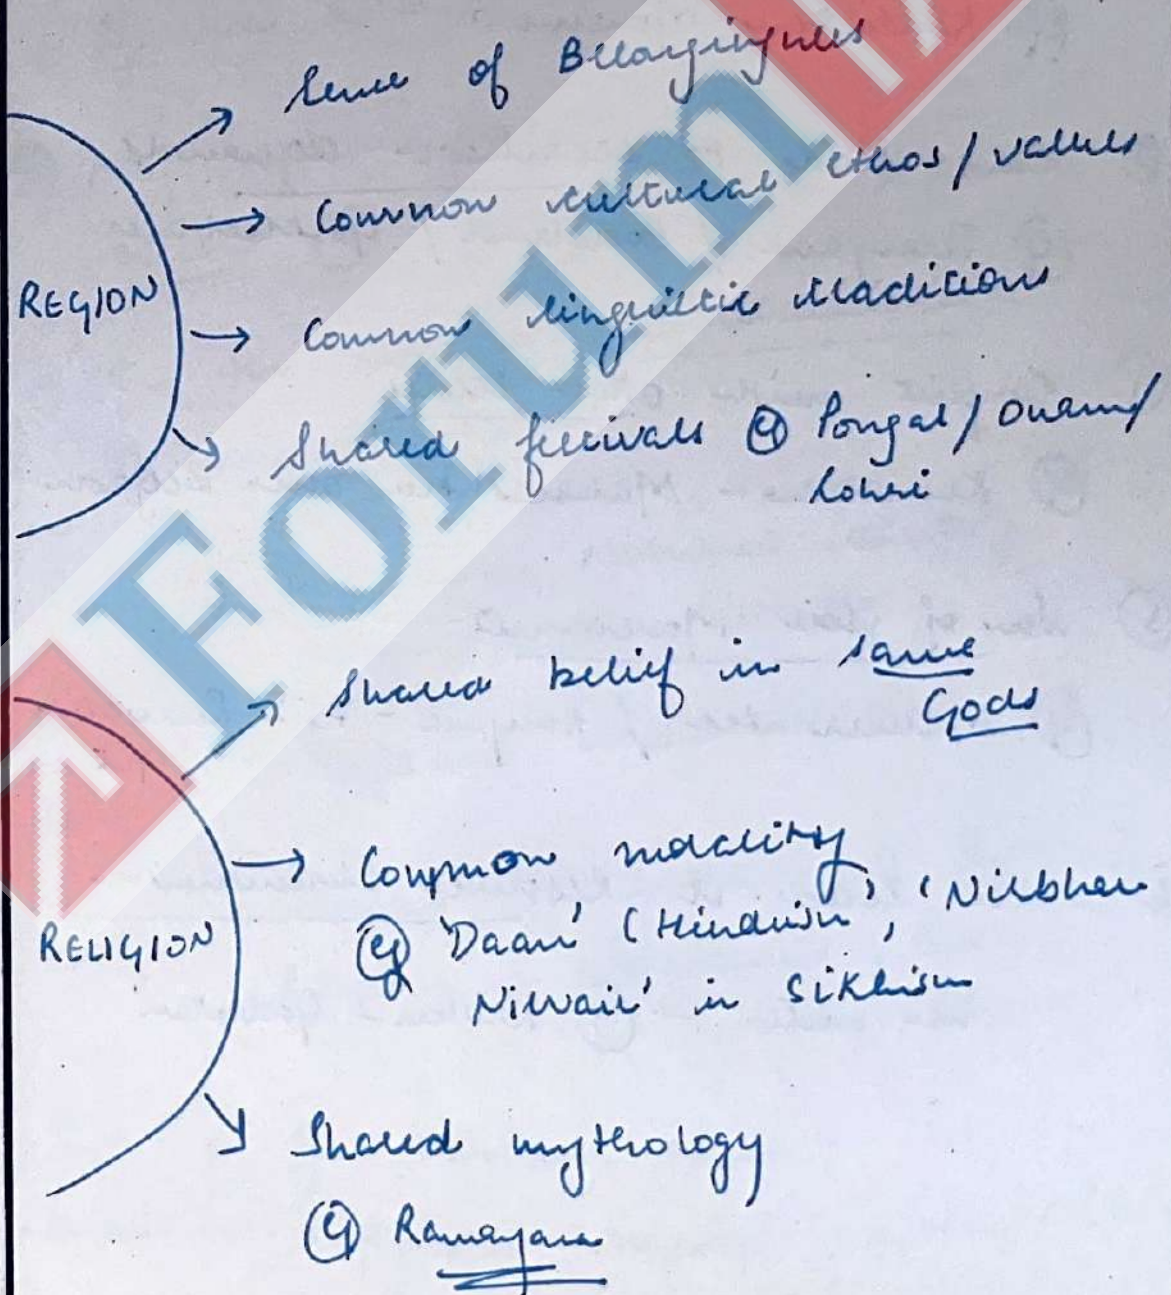 Sense of Belongingness
Common cultural ethos / values
REGION
Common linguistic traditions
Shared festivals eg Pongal / Onam /
Lohri
Forum
Shared belief in same
Gods
Common morality
RELIGION
eg 'Daan' (Hinduism), 'Nirbhau
Nirvair' in Sikhism
Shared mythology
eg Ramayana